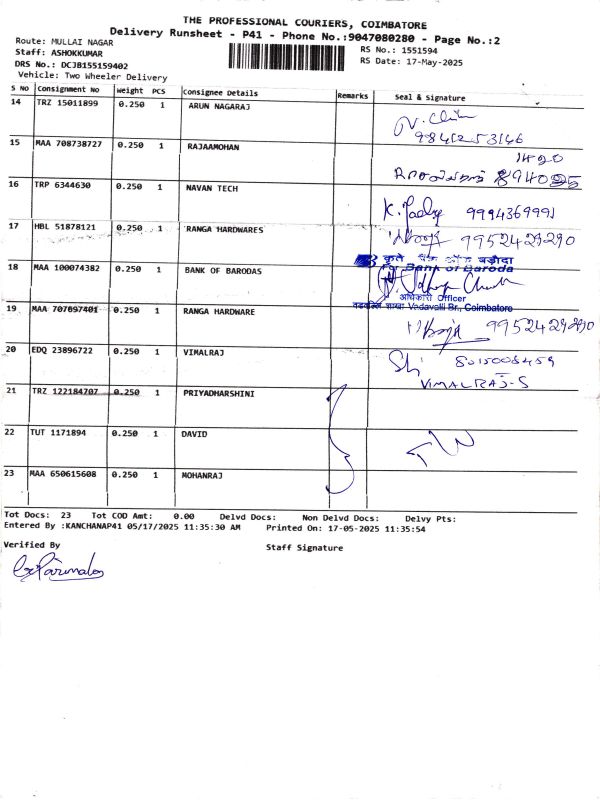 THE PROFESSIONAL COURIERS, COIMBATORE
Delivery Runsheet - P41 - Phone No.:9047080280 - Page No.:2
Route: MULLAI NAGAR
RS No.: 1551594
Staff: ASHOKKUMAR
RS Date: 17-May-2025
DRS No.: DCJB155159402
Vehicle: Two Wheeler Delivery
S NO Consignment No Weight PCS Consignee Details Remarks Seal & Signature
14 TRZ 15011899 0.250 1 ARUN NAGARAJ
9842253146
15 MAA 708738727 0.250 1 RAJAAMOHAN
16 TRP 6344630 0.250 1 NAVAN TECH
9994369991
17 HBL 51878121 0.250 1 RANGA HARDWARES
9952429290
18 MAA 100074382 0.250 1 BANK OF BARODAS
कृते बैंक ऑफ बड़ौदा
For Bank of Baroda
अधिकारी Officer
शाखा Vadavalli Br., Coimbatore
19 MAA 707697401 0.250 1 RANGA HARDWARE
9952429290
20 EDQ 23896722 0.250 1 VIMALRAJ
8015008459
VIMALRAJ-S
21 TRZ 122184707 0.250 1 PRIYADHARSHINI
22 TUT 1171894 0.250 1 DAVID
23 MAA 650615608 0.250 1 MOHANRAJ
Tot Docs: 23 Tot COD Amt: 0.00 Delvd Docs: Non Delvd Docs: Delvy Pts:
Entered By :KANCHANAP41 05/17/2025 11:35:30 AM Printed On: 17-05-2025 11:35:54
Verified By
Staff Signature